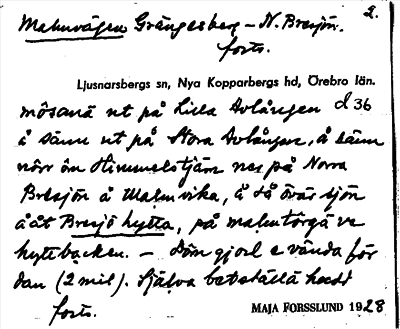 2.
Malmvägen Grängesberg – N. Bresjön.
forts.
Ljusnarsbergs sn, Nya Kopparbergs hd, Örebro län.
mösanä ut på Lilla Avlången d 36
å sänn ut på Stora Avlången, å sänn
nörr åm Himmelstjärn ner på Norra
Bresjön å Malmvika, å så över sjön
ååt Bresjö hytta, på malmtôrgä ve
hyttbacken. – Döm gjord e vända för
dan (2 mil). Själva betställä hadd
forts.
MAJA FORSSLUND 1928